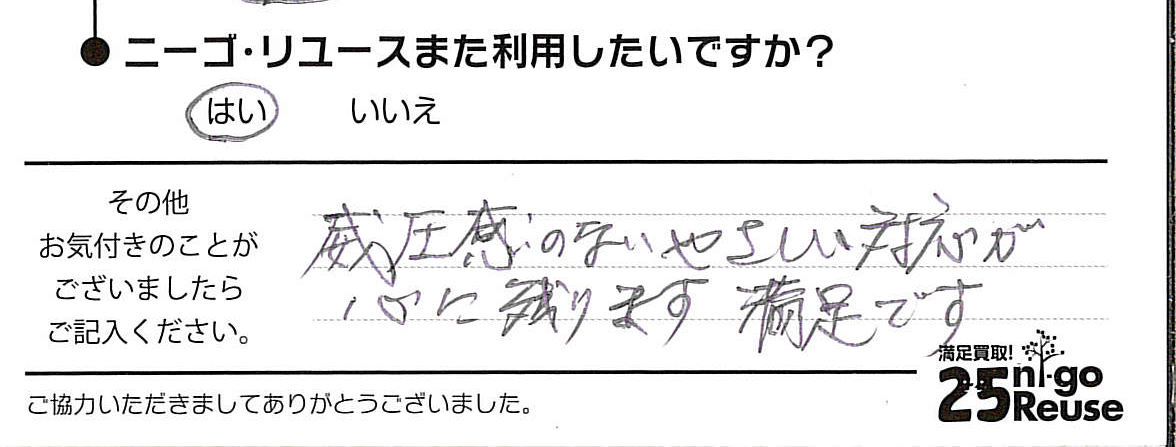 ●ニーゴ・リユースまた利用したいですか?
はい いいえ
その他
お気付きのことが
ございましたら
ご記入ください。
威圧感のないやさしい対応が
心に残ります 満足です
満足買取!
25 ni-go
Reuse
ご協力いただきましてありがとうございました。